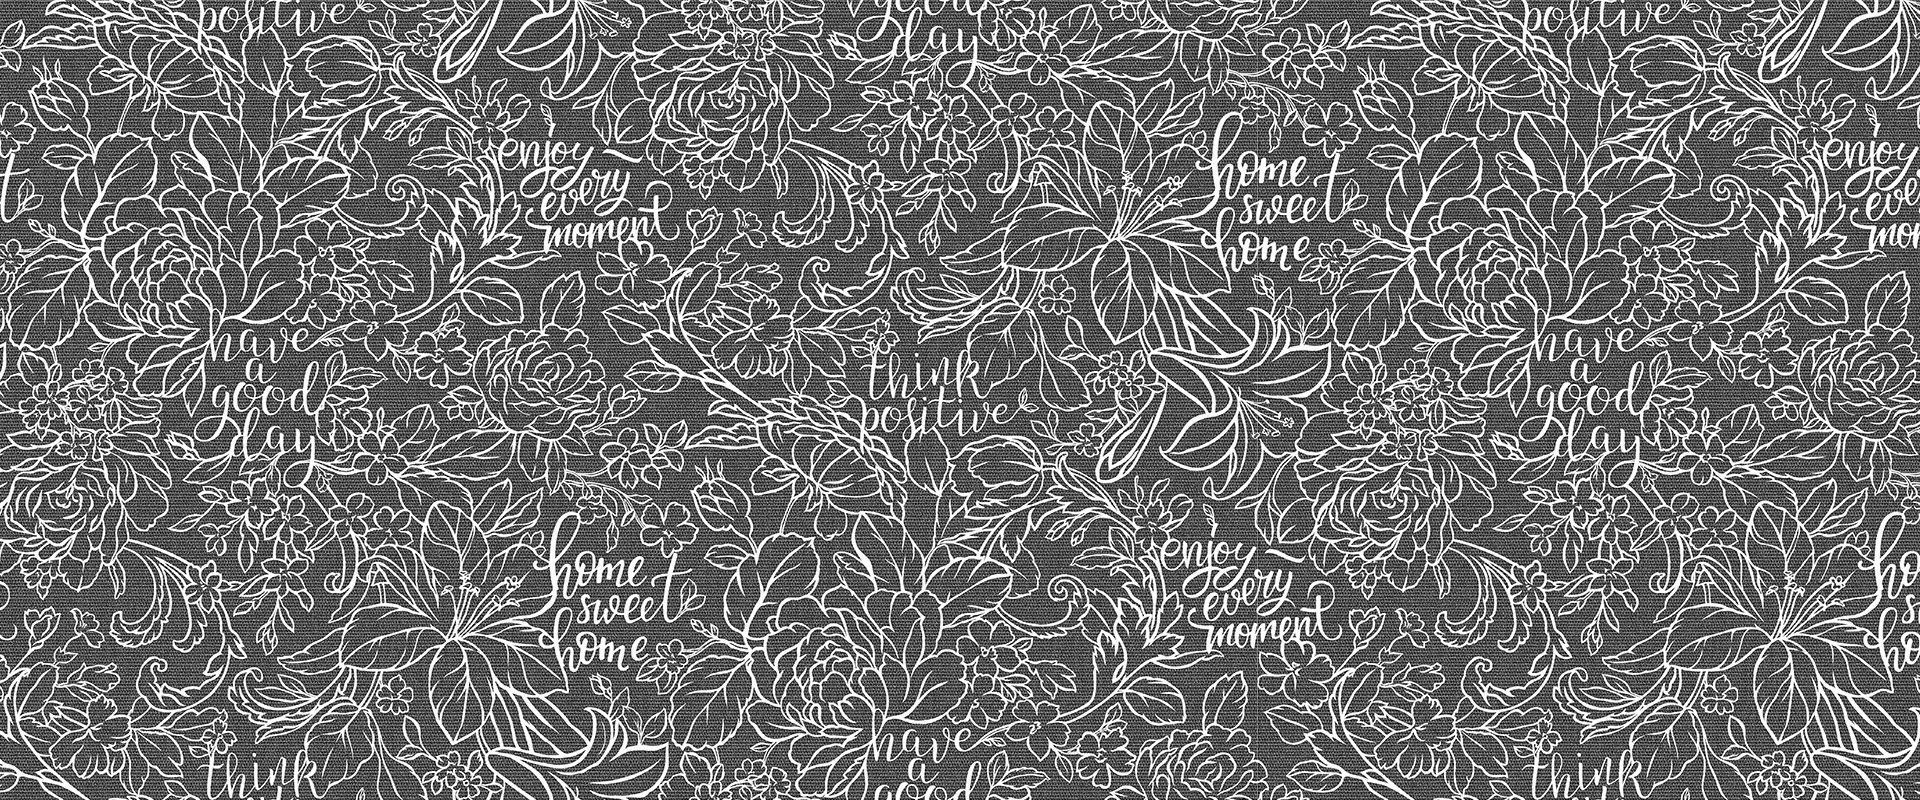 positive
good
day
positive
enjoy
every
moment
home
sweet
home
enjoy
every
moment
t
have
a
good
day
think
positive
have
a
good
day
home
sweet
home
enjoy
every
moment
home
sweet
home
think
have
a
good
think